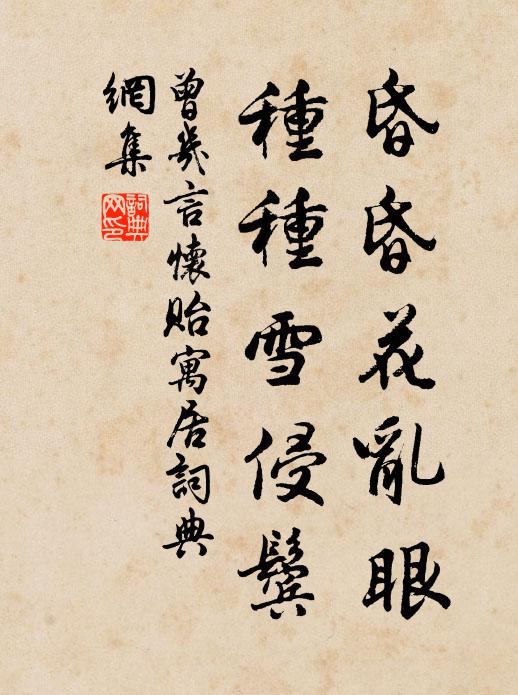 昏昏花亂眼
種種雪侵鬢
曾幾言懷貽寓居詞典
網集
詞典
网印